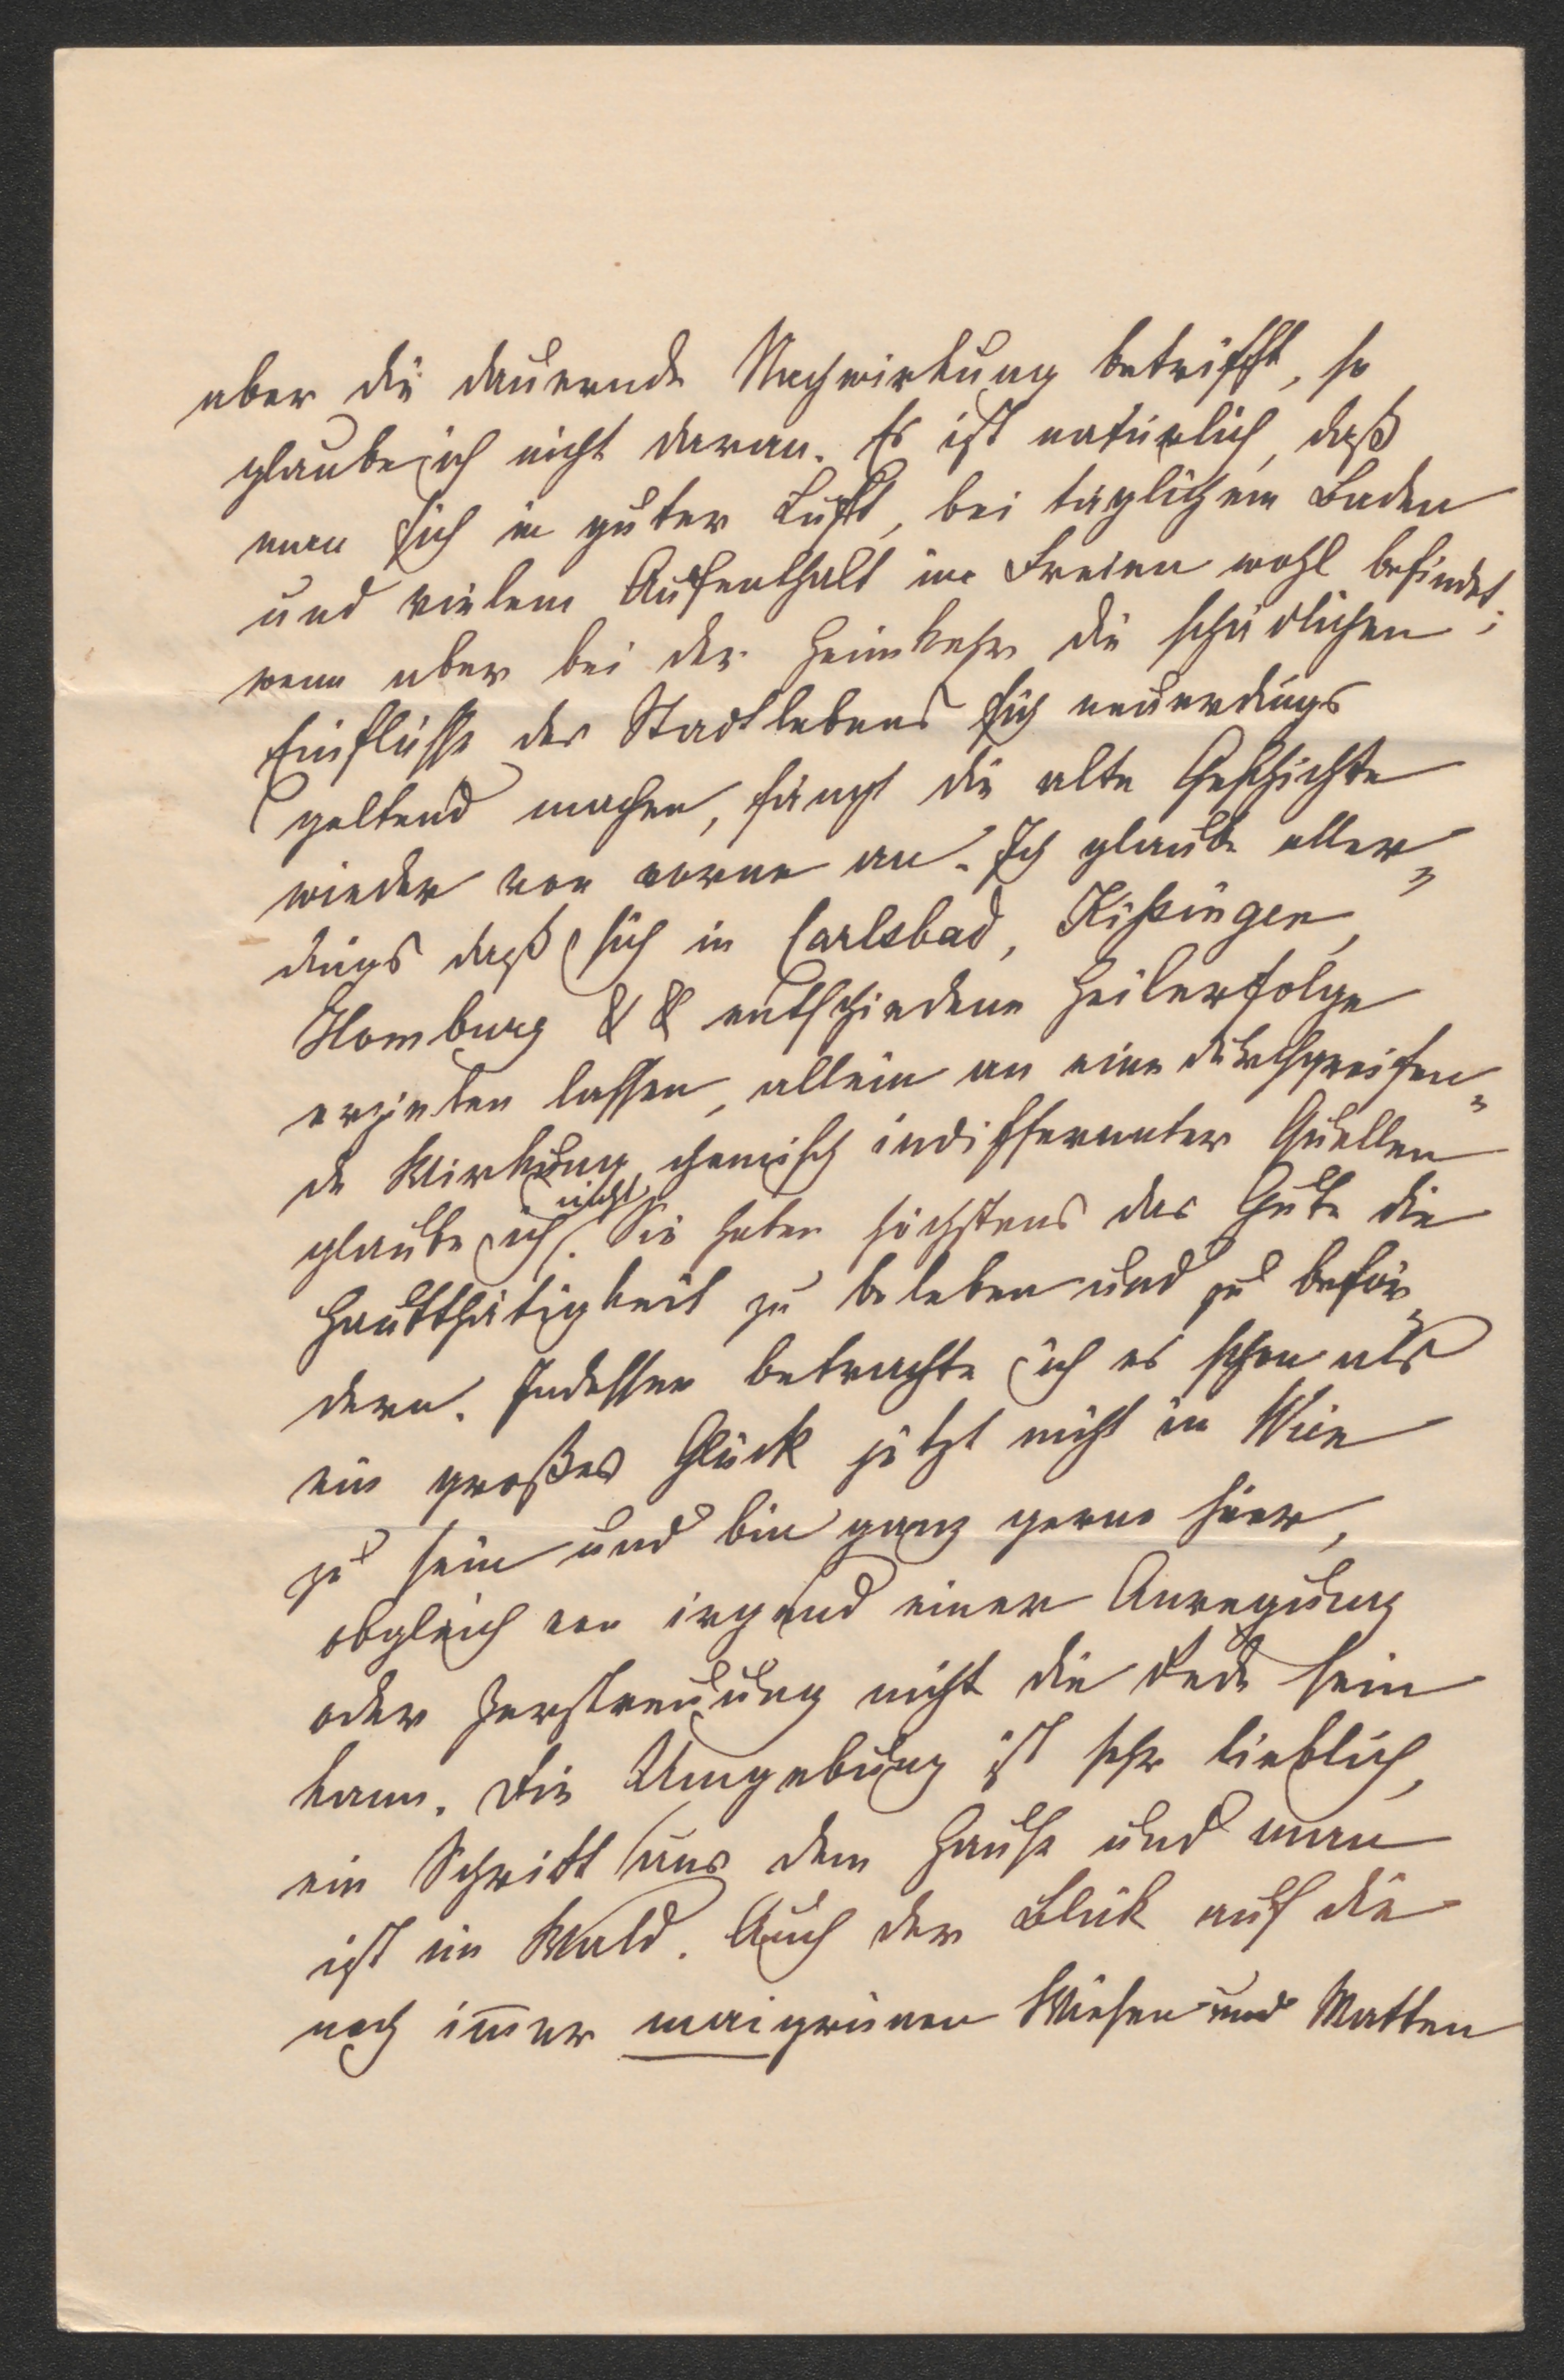 aber die dauernde Nachwirkung betrifft, so
glaube ich nicht daran. Es ist natürlich, daß
man sich in guter Luft, bei täglichem Baden
und vielem Aufenthalt im Freien wohl befindet;
wenn aber bei der Heimkehr die schädlichen
Einflüsse des Stadtlebens sich neuerdings
geltend machen, fängt die alte Geschichte
wieder von vorne an. Ich glaube aller„
dings daß sich in Carlsbad, Kißingen,
Homburg & & entschiedene Heilerfolge
erzielen lassen, allein an eine durchgreifen„
de Wirkung chemisch indifferenter Quellen
glaube ich nicht. Sie haben höchstens das Gute die
Hautthätigkeit zu beleben und zu beför„
dern. Indessen betrachte ich es schon als
ein großes Glück jetzt nicht in Wien
zu sein und bin ganz gerne hier,
obgleich von irgend einer Anregung
oder Zerstreuung nicht die Rede sein
kann. Die Umgebung ist sehr lieblich,
ein Schritt aus dem Hause und man
ist im Wald. Auch der Blick auf die
noch immer maigrünen Wiesen und Matten